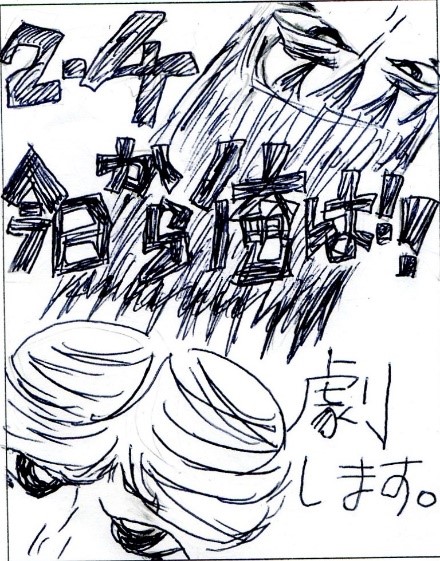 2-4
今日から俺は!!
劇
します。